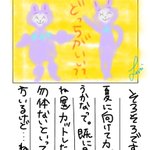 どっちがいい??
そろそろです
夏に向けてカ
うかな。既に
カットし
勿体ないといっ
方いるけど…ね